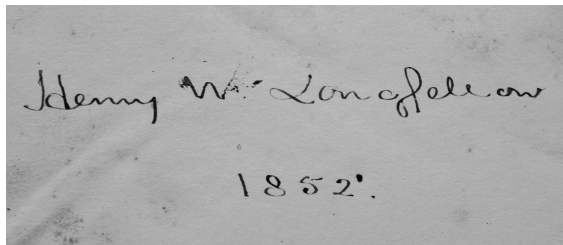 Henry W. Longfellow
1852.